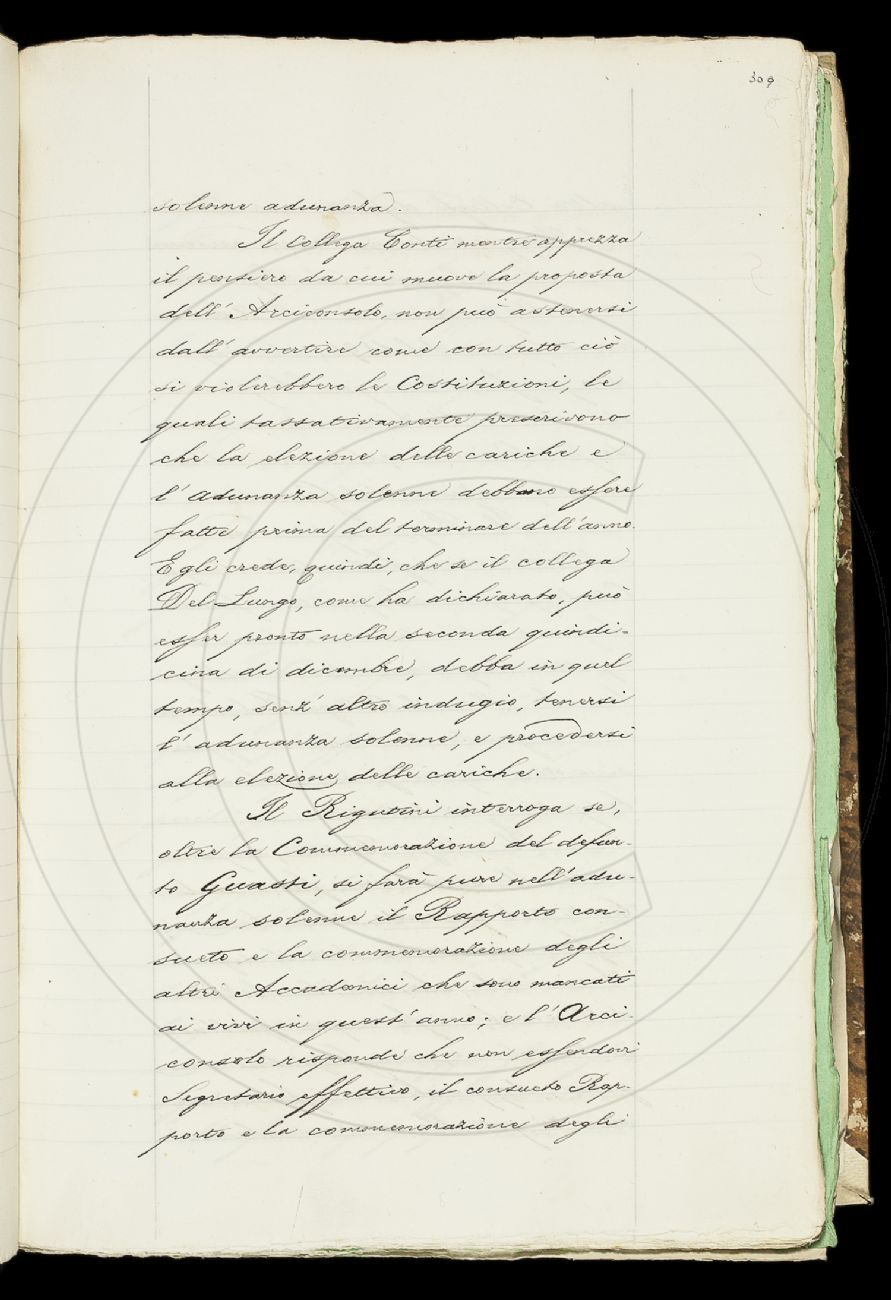 309
solenne adunanza.
Il collega Conti mentre apprezza
il pensiero da cui muove la proposta
dell' Arciconsolo, non può astenersi
dall' avvertire come con tutto ciò
si violerebbero le Costituzioni, le
quali tassativamente prescrivono
che la elezione delle cariche e
l' adunanza solenne debbano essere
fatte prima del terminare dell'anno.
Egli crede, quindi, che se il collega
Del Lungo, come ha dichiarato, può
esser pronto nella seconda quindi-
cina di dicembre, debba in quel
tempo, senz' altro indugio, tenersi
l' adunanza solenne, e procedersi
alla elezione delle cariche.
Il Rigutini interroga se,
oltre la Commemorazione del defun-
to Guasti, si farà pure nell'adu-
nanza solenne il Rapporto con-
sueto e la commemorazione degli
altri Accademici che sono mancati
ai vivi in quest' anno; e l' Arci-
consolo risponde che non essendovi
Segretario effettivo, il consueto Rap-
porto e la commemorazione degli